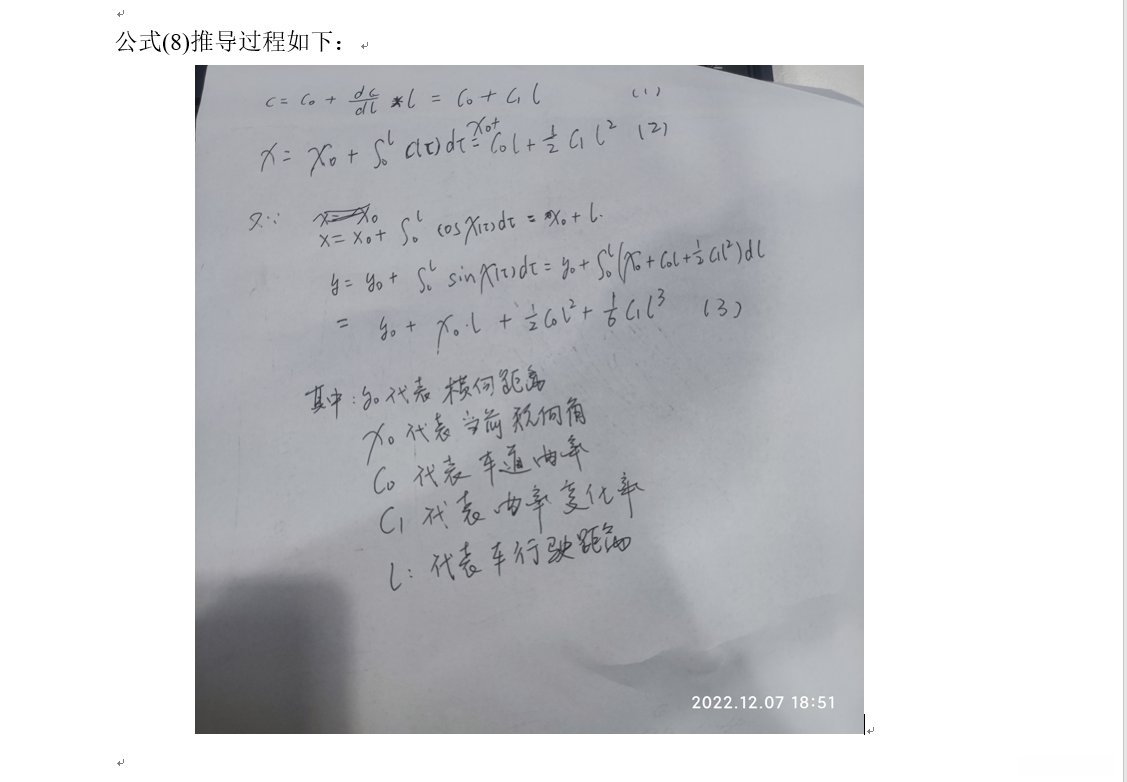 公式(8)推导过程如下：
c = c₀ + dc/dl * l = C₀ + C₁ l (1)
χ = χ₀ + ∫₀ˡ c(τ)dτ = χ₀ + C₀l + 1/2 C₁ l² (2)
又∵ x = x₀
x = x₀ + ∫₀ˡ cosχ(τ)dτ = x₀ + l.
y = y₀ + ∫₀ˡ sinχ(τ)dτ = y₀ + ∫₀ˡ(χ₀ + C₀l + 1/2 C₁l²)dl
= y₀ + χ₀·l + 1/2 C₀l² + 1/6 C₁l³ (3)
其中: y₀ 代表 横向距离
χ₀ 代表 当前航向角
C₀ 代表 车道曲率
C₁ 代表 曲率变化率
l: 代表 车行驶距离
2022.12.07 18:51